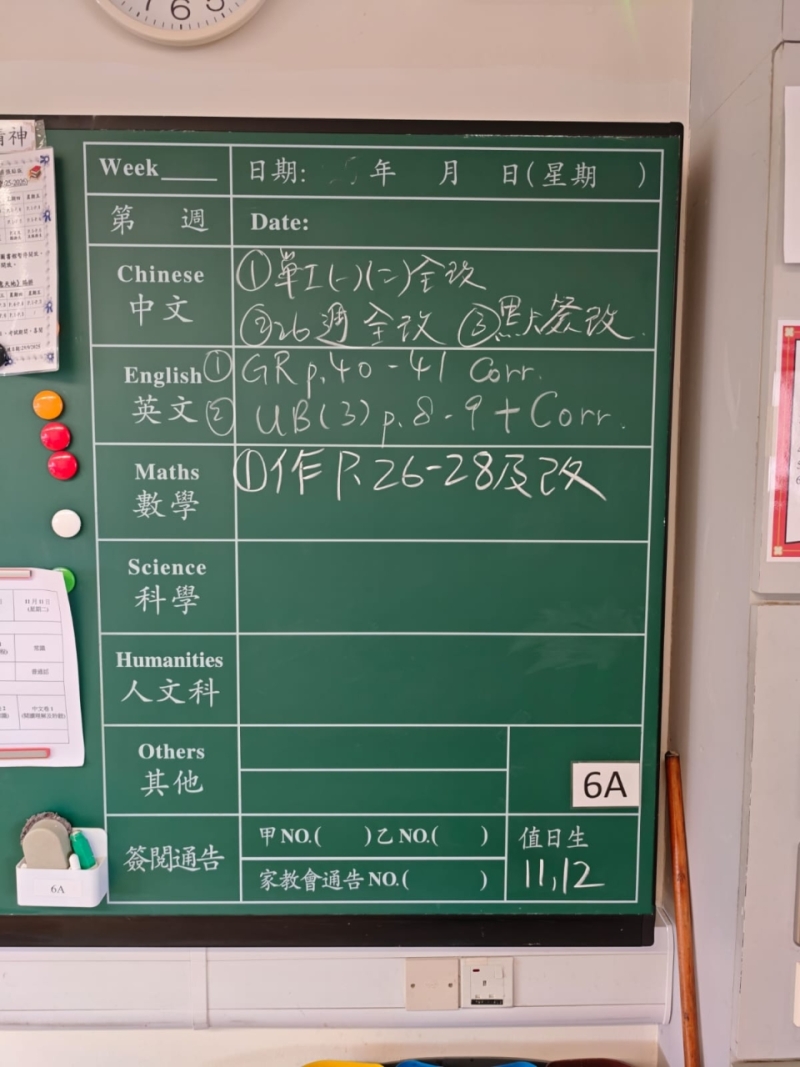 6 5
精神
Week____ 日期: 年 月 日(星期 )
第 週 Date:
Chinese ①單工(一)(二)全改
中文 ②26週全改 ③點卡簽改.
English ① GR p.40-41 Corr.
英文 ② UB(3) p.8-9+Corr.
Maths ①作P.26-28及改
數學
Science
科學
Humanities
人文科
Others
其他
6A
簽閱通告 甲NO.( )乙NO.( ) 值日生
家教會通告NO.( ) 11,12
6A